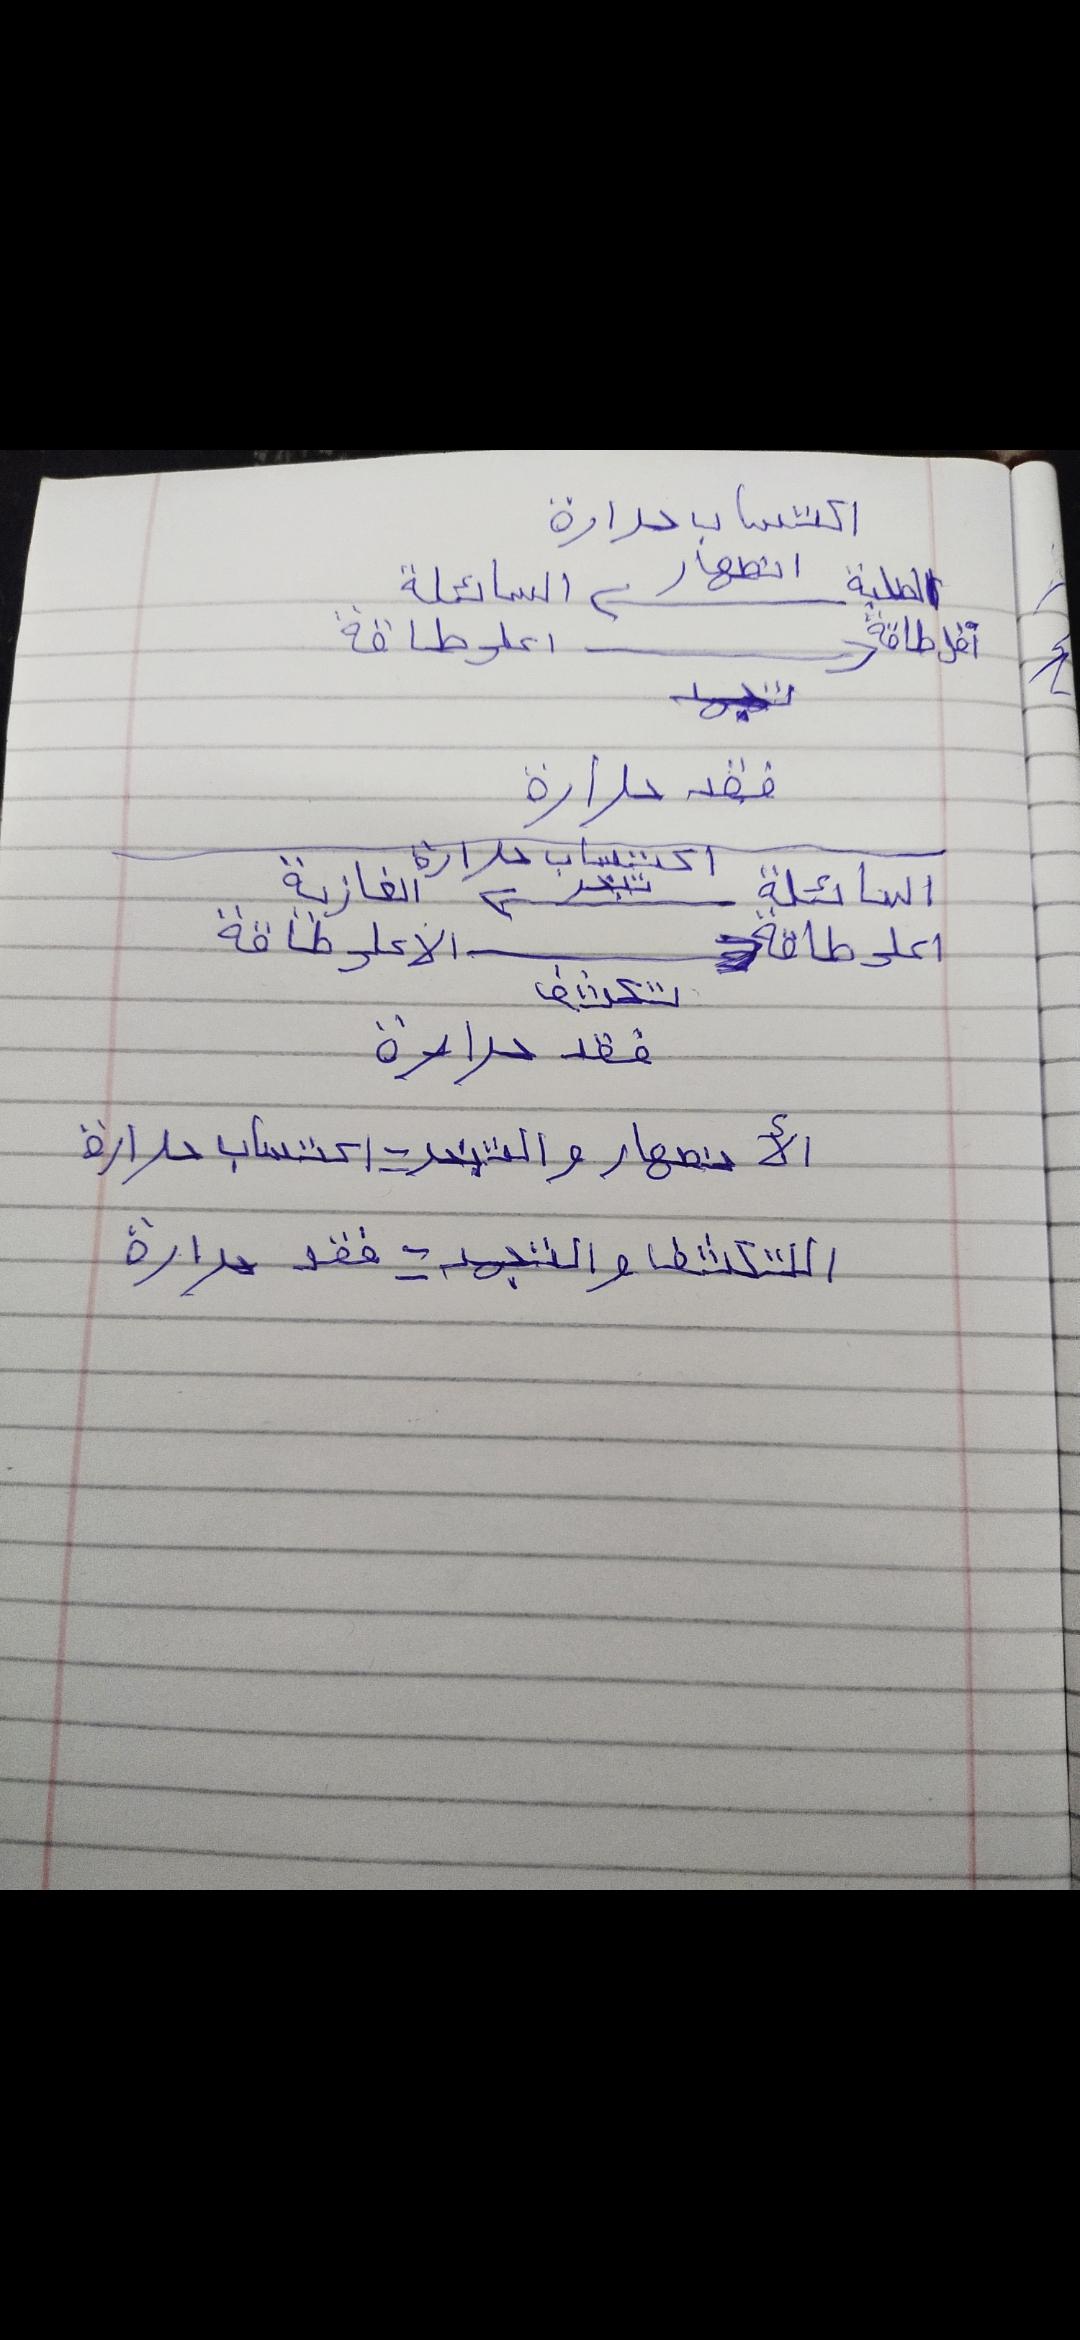 اكتساب حرارة
انصهار
الصلبة السائلة
أقل طاقة اعلى طاقة
تجمد
فقد حرارة
اكتساب حرارة
تبخر
السائلة الغازية
اعلى طاقة الاعلى طاقة
تكثف
فقد حرارة
الأنصهار والتبخر = اكتساب حرارة
التكثف والتجمد = فقد حرارة